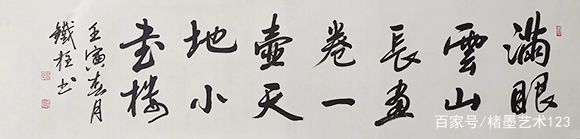 滿眼
雲山
長畫
卷一
壺天
地小
書樓
壬寅春月
鐵柱书
百家号/楮墨艺术123